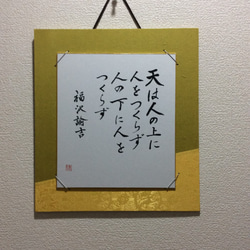 天は人の上に
人をつくらず
人の下に人を
つくらず
福沢諭吉